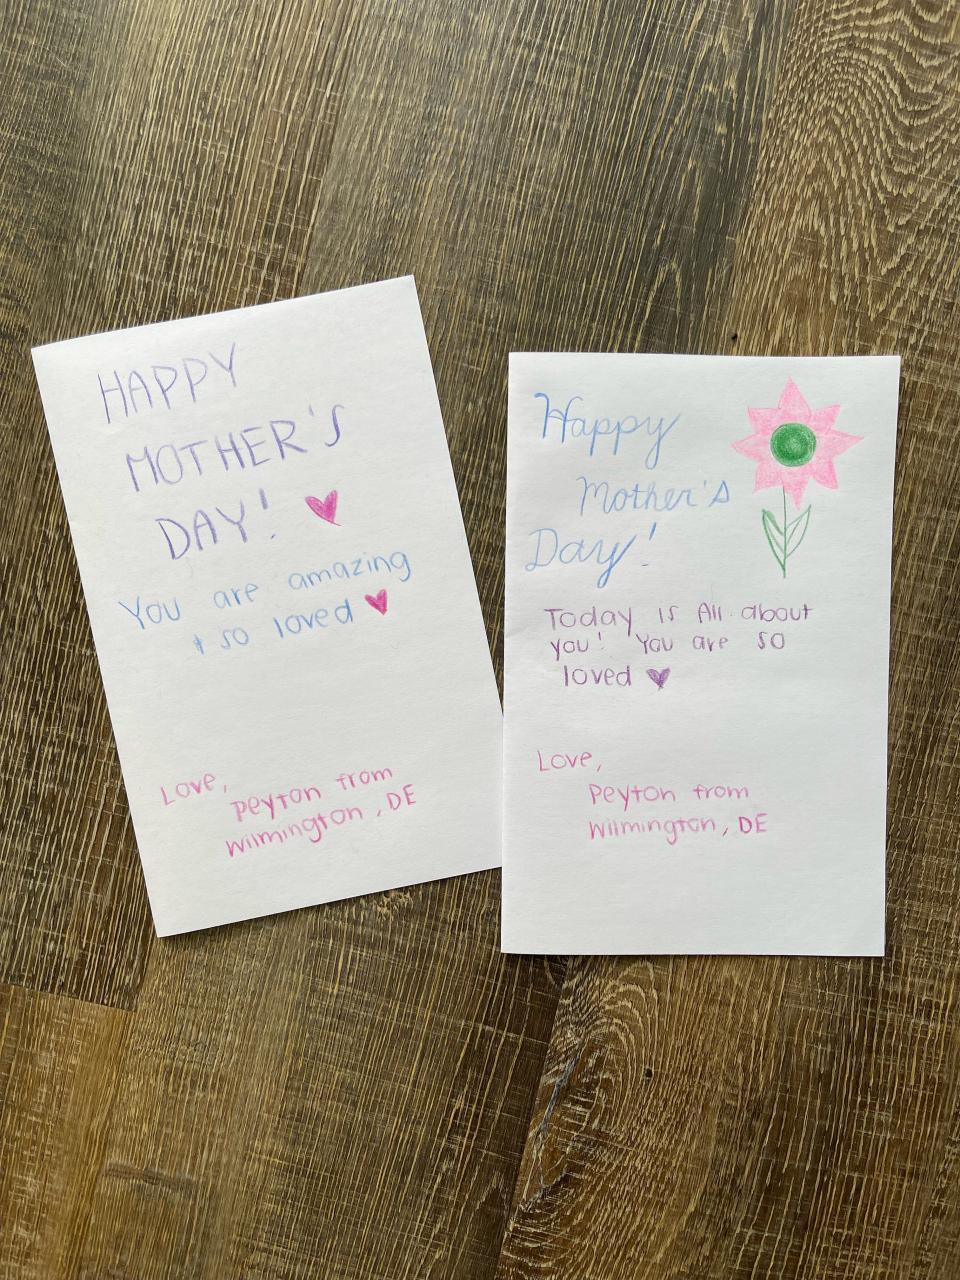 HAPPY
MOTHER'S
DAY!
You are amazing
+ so loved
Love,
Peyton from
Wilmington, DE
Happy
Mother's
Day!
Today is All about
you! You are so
loved
Love,
Peyton from
Wilmington, DE